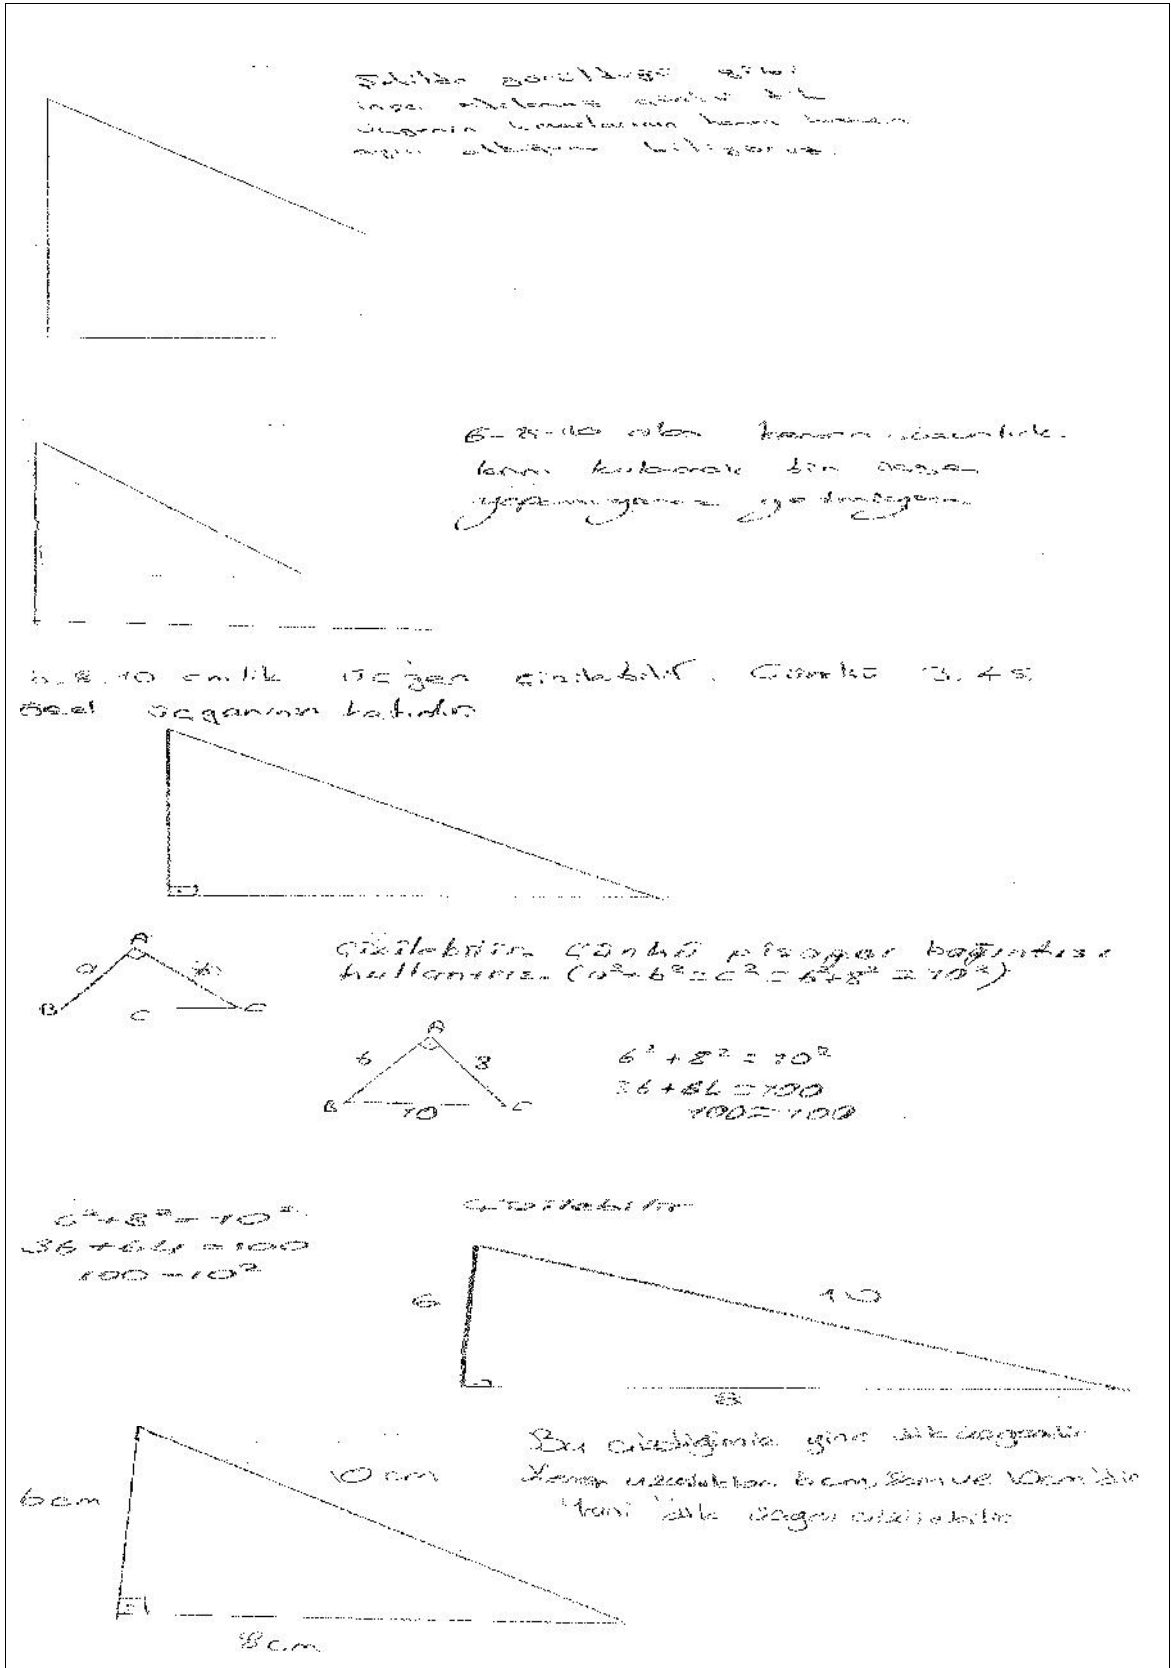 Şekilde görüldüğü gibi
inşa edelemez çünkü dik
üçgenin kenarlarının
olduğunu biliyoruz.
6-8-10 olan kenar uzunluk-
larını kullanarak bir üçgen
yapamıyoruz
6.8.10 cmlik üçgen çizilebilir. Çünkü 3.4.5
özel üçganinin katıdır
A
a b
B C C
Çizilebilir. Çünkü pisagor bağıntısı
kullanırız. (a²+b²=c²=6²+8²=10²)
A
6 8
B 10 C
6²+8²=10²
36+64=100
100=100
6²+8²=10²
36+64=100
100=10²
Çizilebilir
6
10
8
6cm
10cm
8cm
Bu çizdiğimiz yine dik üçgendir
Kenar uzunlukları 6cm, 8cm ve 10cm'dir
Yani dik üçgen çizilebilir